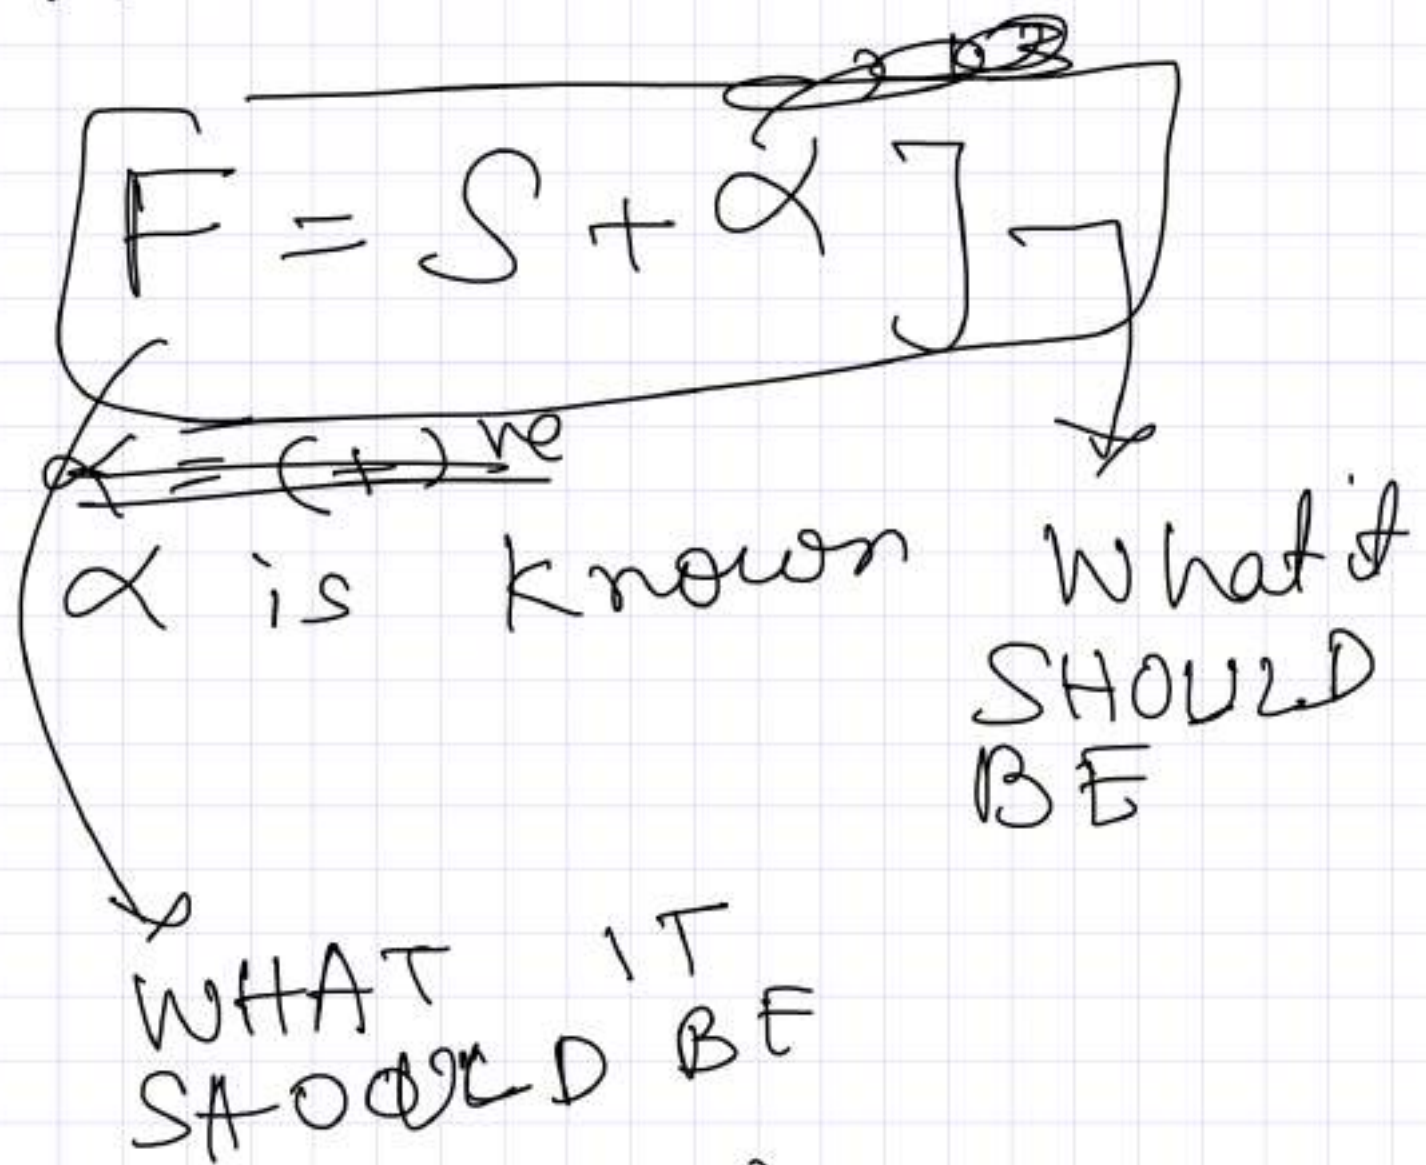 F = S + α J
α = (+)ve
α is known
What it
SHOULD
BE
WHAT IT
SHOULD BE